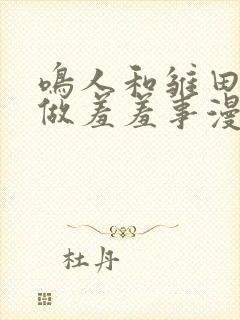 鸣人和雏田
做羞羞事漫
杜丹